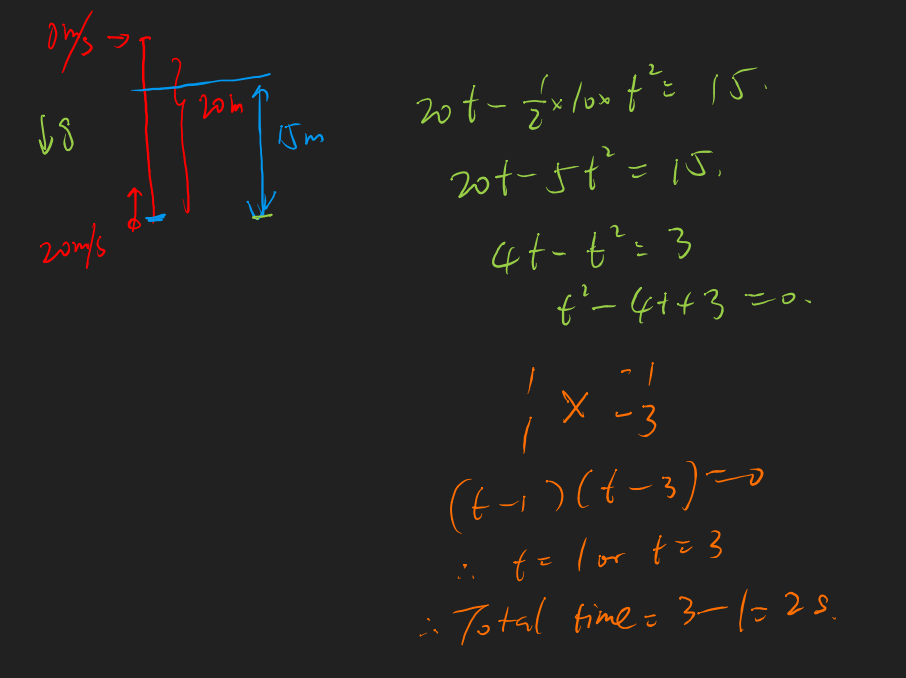 0m/s →
20m
↓g
15m
20m/s
20t - 1/2 × 10 × t² = 15.
20t - 5t² = 15.
4t - t² = 3
t² - 4t + 3 = 0.
1 × -1
1 -3
(t-1)(t-3)=0
∴ t = 1 or t = 3
∴ Total time = 3-1 = 2s.